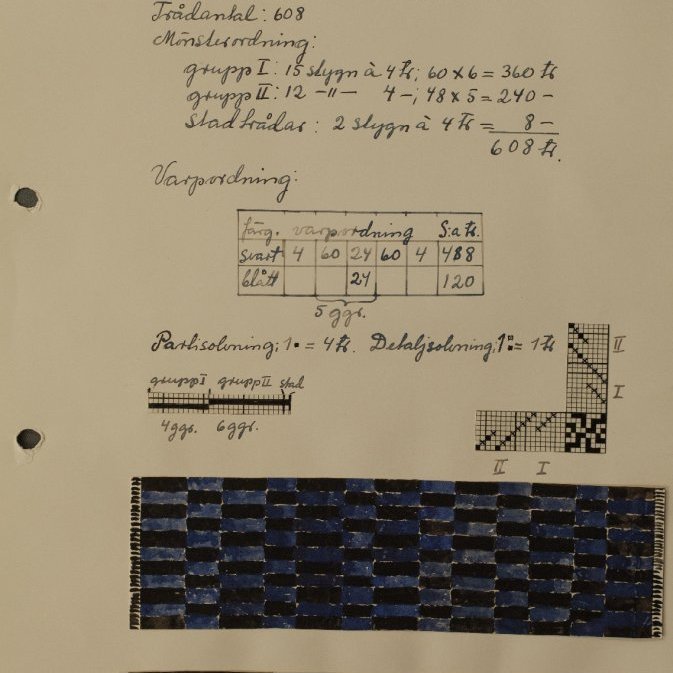 Trådantal: 608
Mönsterordning:
grupp I: 15 slygn à 4 tr; 60 x 6 = 360 tr
grupp II: 12 -"- 4 -; 48 x 5 = 240 -
Stadtrådar: 2 slygn à 4 tr = 8 -
608 tr.
Varpordning:
färg. varpordning S:a tr.
svart 4 60 24 60 4 488
blått 24 120
5 ggr.
Partisolvning; 1▪ = 4 tr. Detaljsolvning; 1 = 1 tr
II
grupp I grupp II stad
I
4 ggr. 6 ggr.
II I